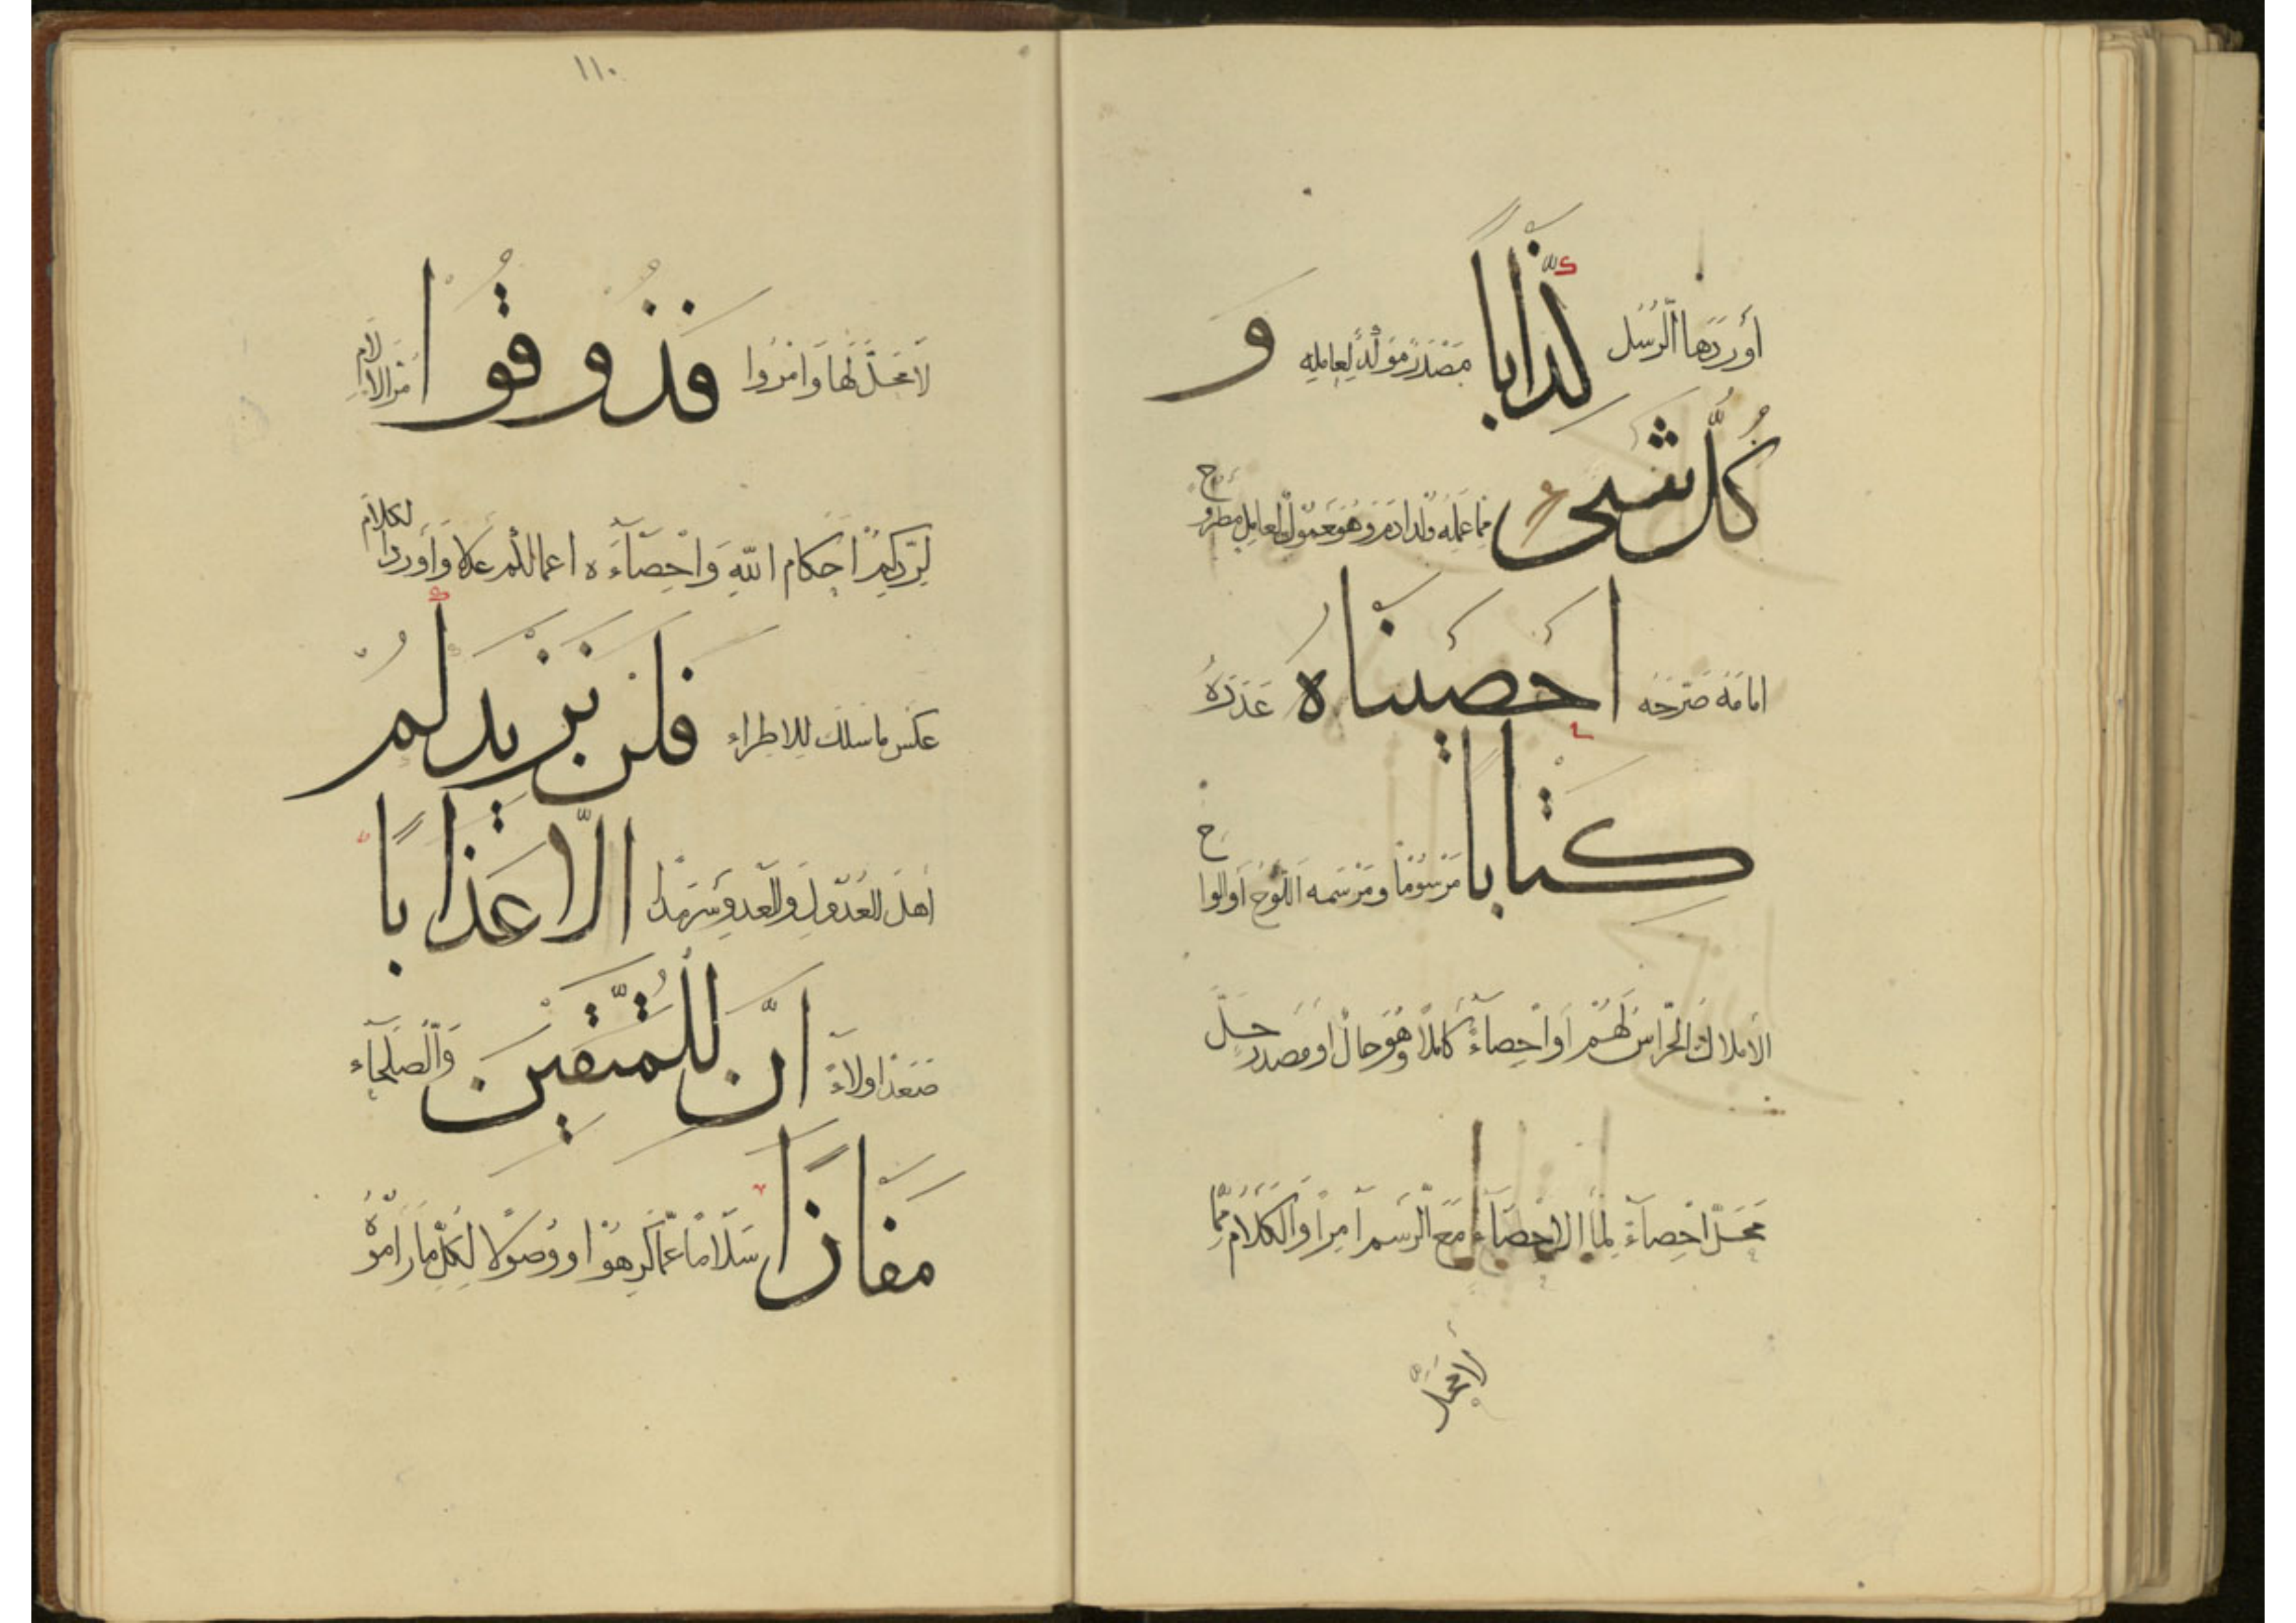 أَوْرَدَهَا الرُّسُل كِذَّابًا مَصْدَرٌ مُؤَكِّدٌ لِعَامِلِهِ وَ
كُلَّ شَىْءٍ مما عمله ولد ادم وهو معمول لعامل مطروح
امامه صرحه اَحْصَيْنَاهُ عَدَدَهُ
كِتَابًا مَرْسُومًا ومرسمه اللوح أو الواح
الأملاك الحراس لهم أو احصاء كاملا وهو حال أو مصدر حل
محل احصاء لما الاحصاء مع الرسم امرا والكلام مما
لا محل
١١٠
لا محل لها وامروا فَذُوقُوا مرا الالام
لردكم احكام الله واحصاءه اعمالكم عدلا وأورد الكلام
عكس ما سلك للاطراء فَلَنْ نَزِيدَكُمْ
اهل العدول والعدو سرمدا اِلَّا عَذَابًا
صعدا ولاء اِنَّ لِلْمُتَّقِينَ والصلحاء
مَفَازًا سلاما عما كرهوا أو وصولا لكل ما راموه